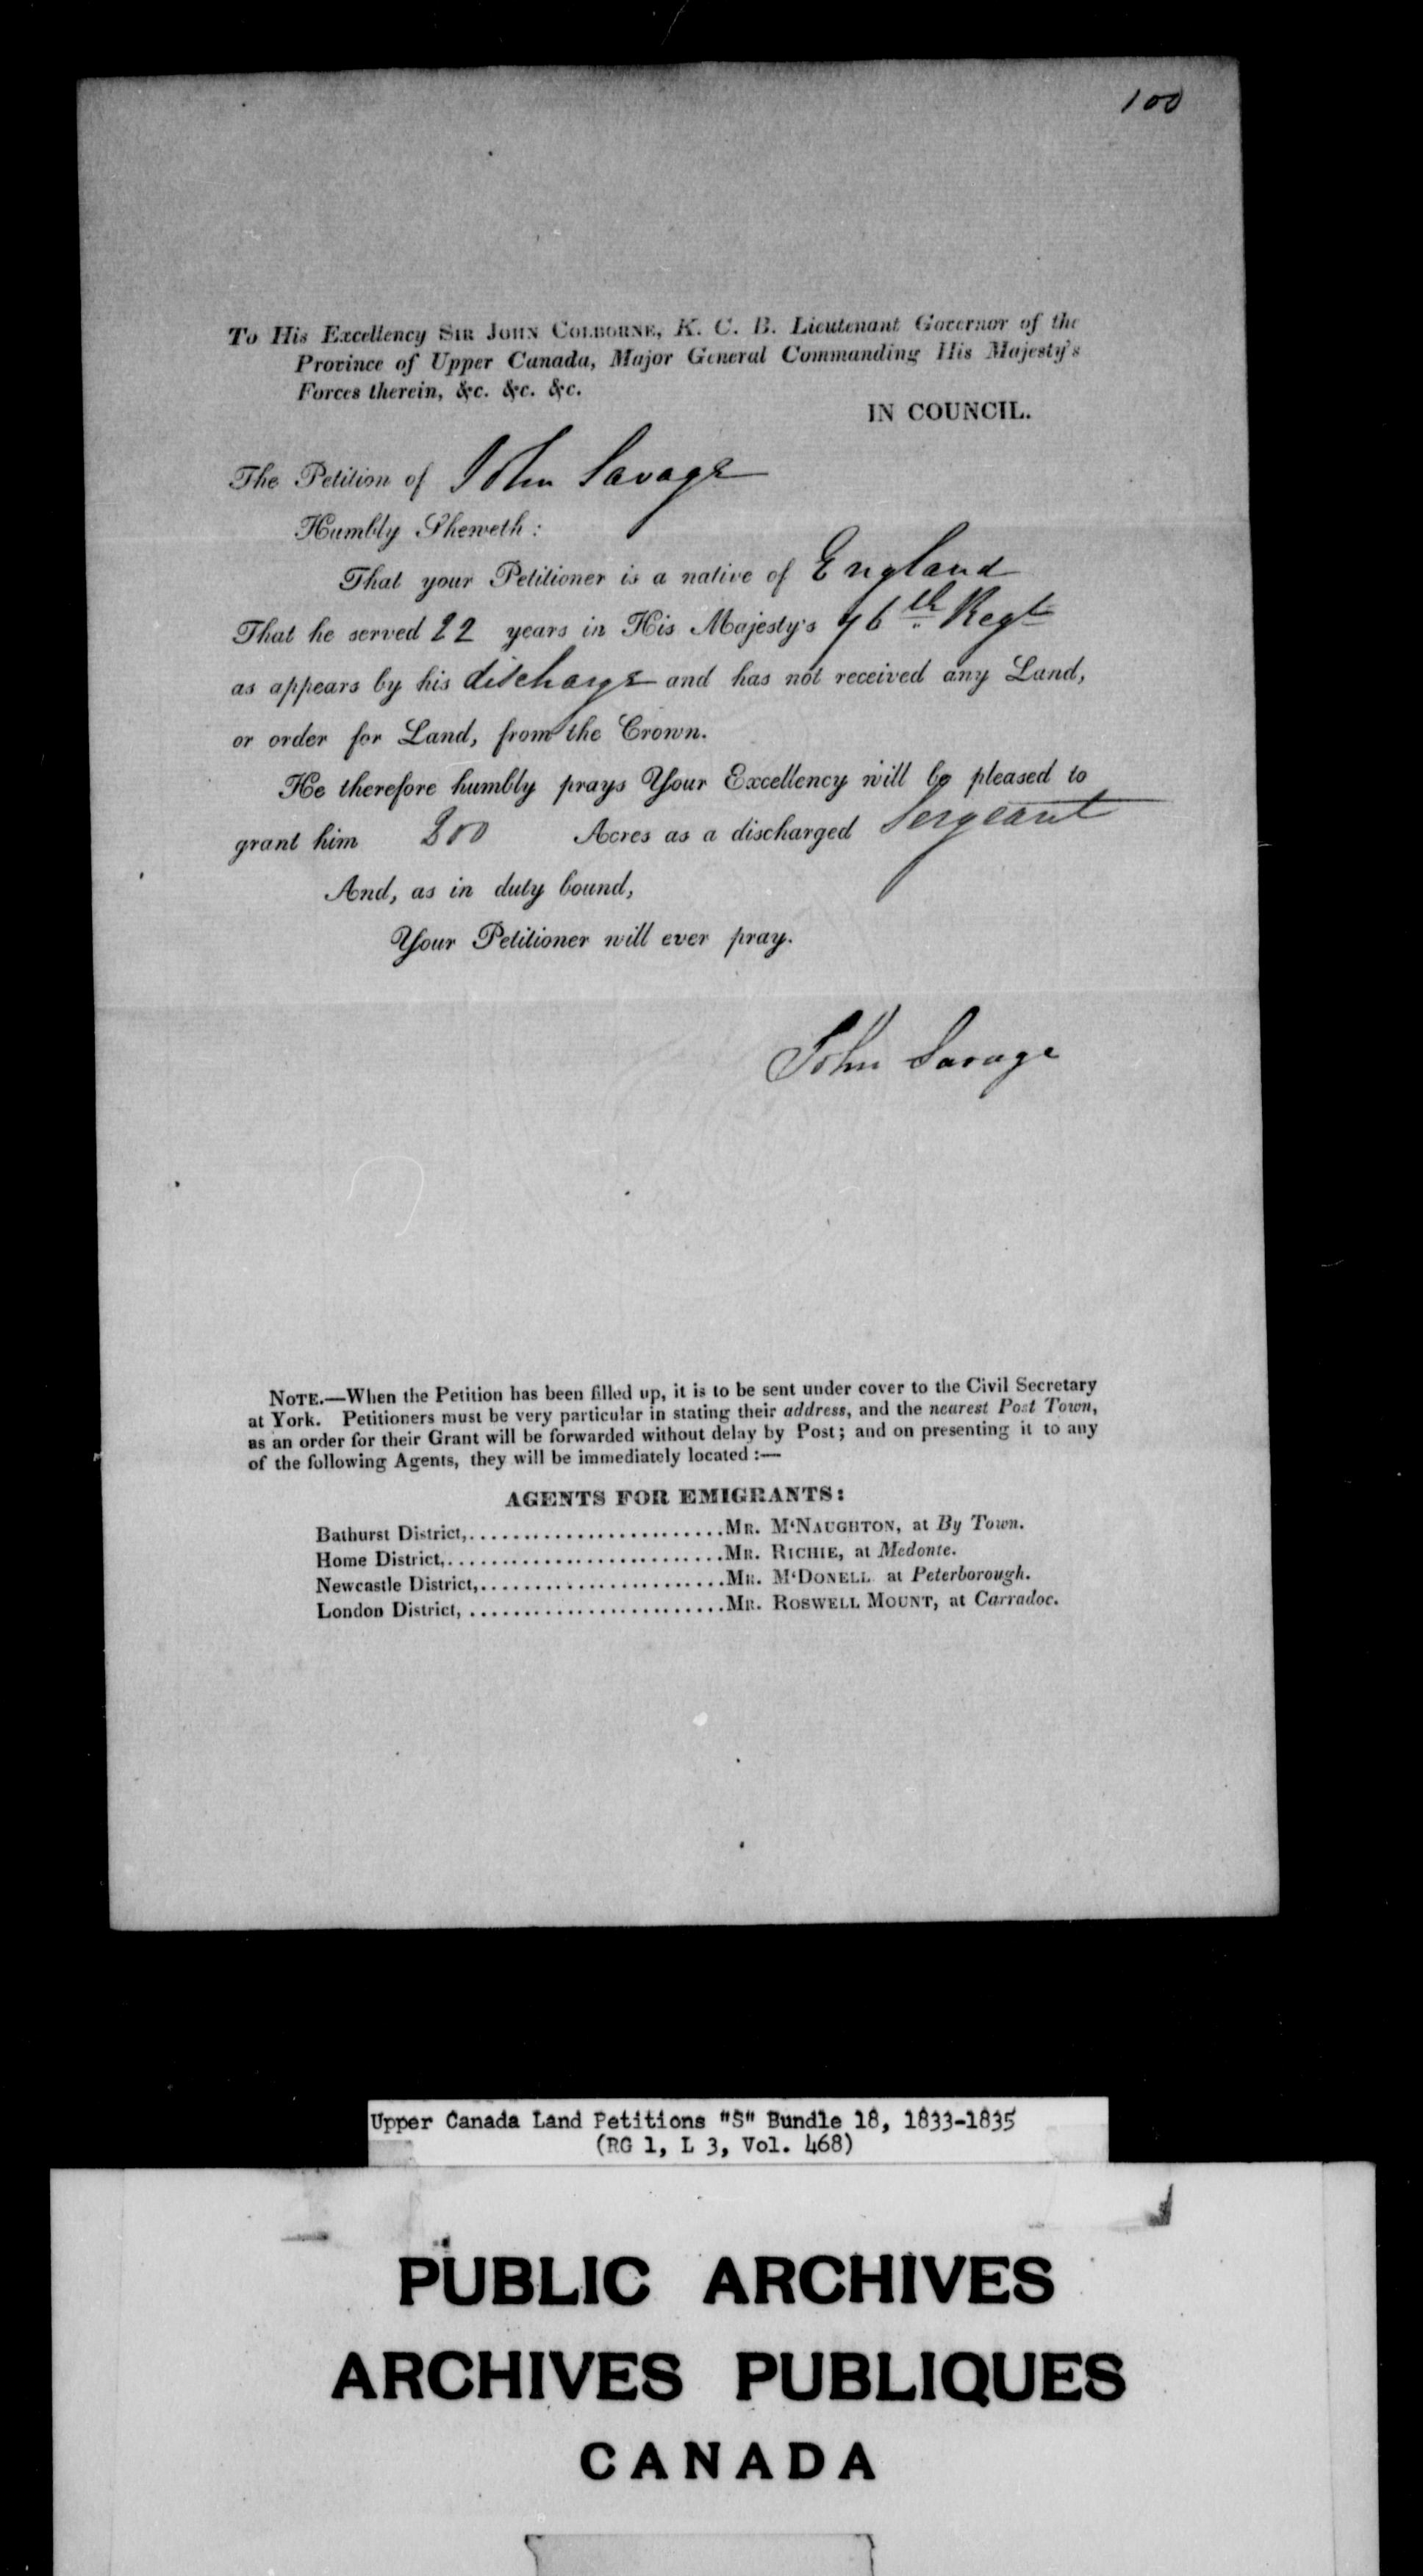 100
To His Excellency SIR JOHN COLBORNE, K. C. B. Lieutenant Governor of the
Province of Upper Canada, Major General Commanding His Majesty's
Forces therein, &c. &c. &c.
IN COUNCIL.
The Petition of John Savage
Humbly Sheweth:
That your Petitioner is a native of England
That he served 22 years in His Majesty's 76th Regt
as appears by his discharge and has not received any Land,
or order for Land, from the Crown.
He therefore humbly prays Your Excellency will be pleased to
grant him 200 Acres as a discharged Sergeant
And, as in duty bound,
Your Petitioner will ever pray.
John Savage
NOTE.—When the Petition has been filled up, it is to be sent under cover to the Civil Secretary
at York. Petitioners must be very particular in stating their address, and the nearest Post Town,
as an order for their Grant will be forwarded without delay by Post; and on presenting it to any
of the following Agents, they will be immediately located :—
AGENTS FOR EMIGRANTS:
Bathurst District,........................MR. M'NAUGHTON, at By Town.
Home District,..........................MR. RICHIE, at Medonte.
Newcastle District,.......................MR. M'DONELL at Peterborough.
London District, ........................MR. ROSWELL MOUNT, at Carradoc.
Upper Canada Land Petitions "S" Bundle 18, 1833-1835
(RG 1, L 3, Vol. 468)
PUBLIC ARCHIVES
ARCHIVES PUBLIQUES
CANADA